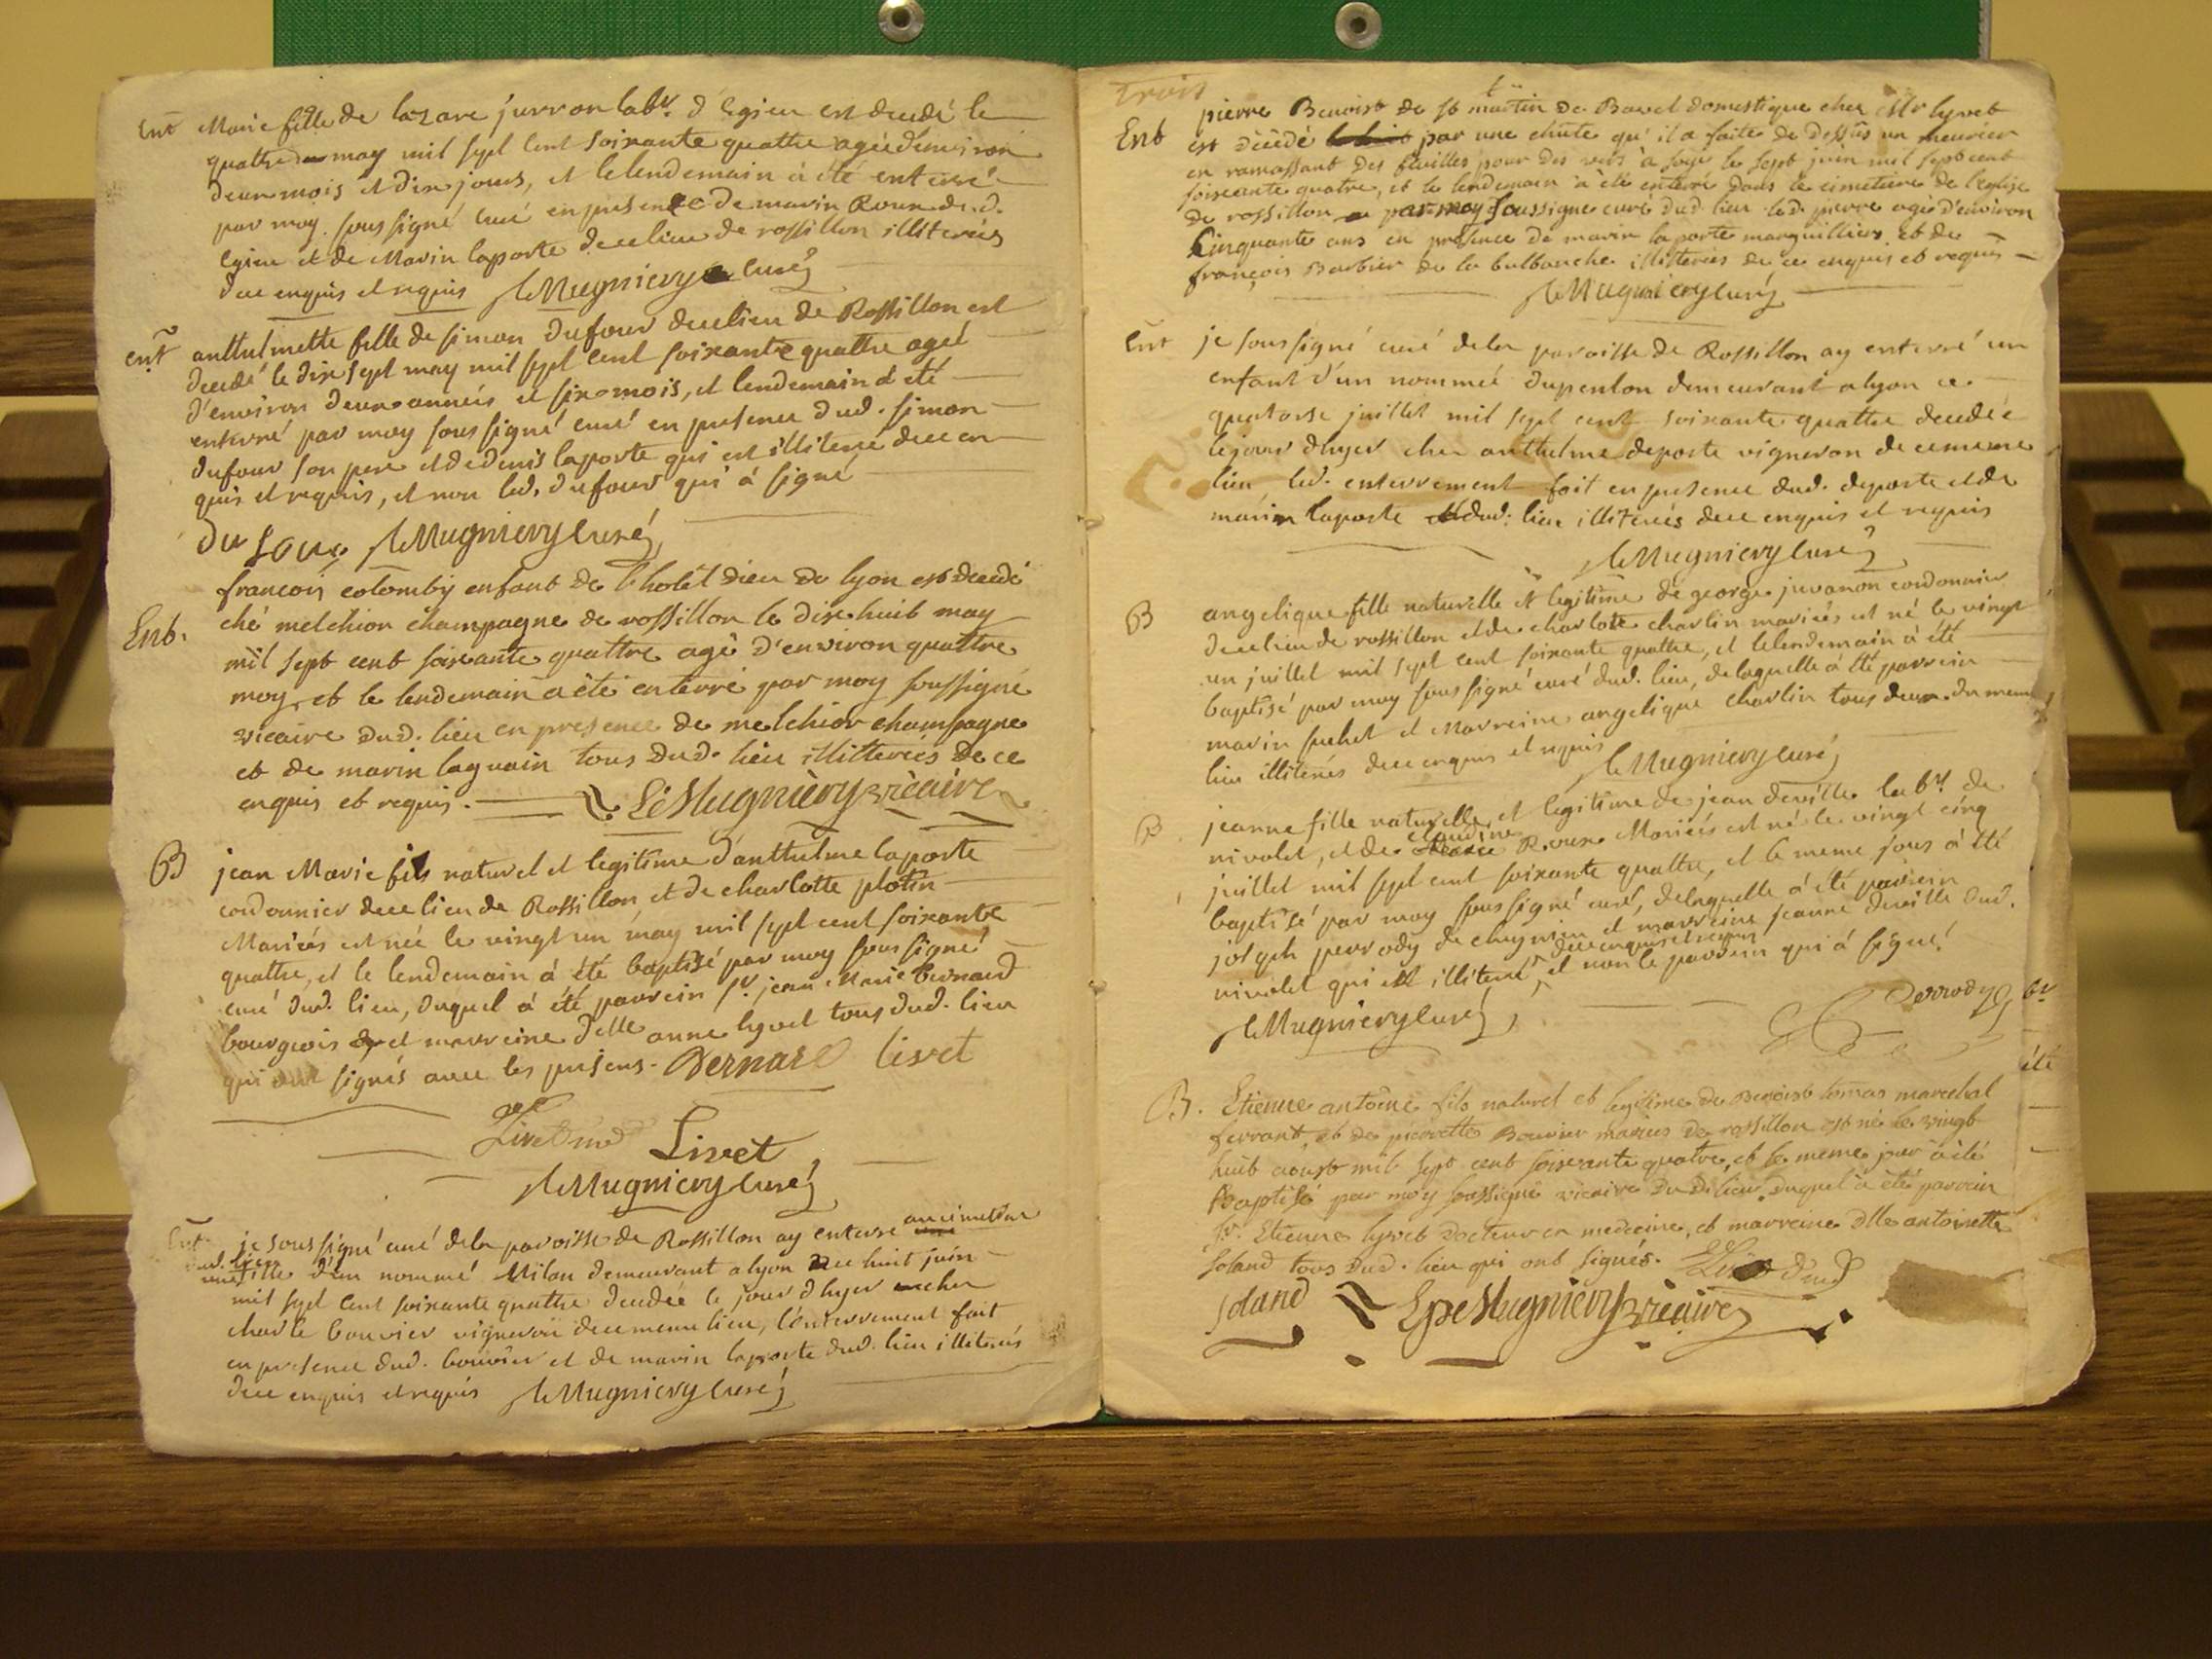 Ent Marie fille de lazare juvron labr. d'Egieu est decedé le
quattre may mil sept cent soixante quattre agée d'environ
deux mois et dix jours, et le lendemain à été enterré
par moy soussigné curé en presence de marin Roux dud.
Egieu et de Marin laporte de ce lieu de rossillon illiterés
de ce enquis et requis leMugniery curé
Ent anthelmette fille de simon dufour de ce lieu de Rossillon est
decedé le dix sept may mil sept cent soixante quattre agée
d'environ deux années et six mois, et lendemain à été
enterré par moy sous signé curé en presence dud. simon
dufour son pere et de denis laporte qui est illiteré de ce en
quis et requis, et non led. dufour qui à signé
Du four leMugniery curé
françois colomby enfant de l'hotêl dieu de lyon est decedé
Ent. ché melchior champagne de rossillon le dix huit may
mil sept cent soixante quattre agé d'environ quattre
moy, et le lendemain a été enterré par moy soussigné
vicaire dud. lieu en presence de melchior champagne
et de marin laguain tous dud. lieu illitterés de ce
enquis et requis. LeMugnièry vicaire
B jean Marie fils naturel et legitime d'anthelme laporte
cordonnier de ce lieu de Rossillon et de charlotte plotin
Mariés est née le vingt un may mil sept cent soixante
quattre, et le lendemain à été baptisé par moy sous signé
curé dud. lieu, duquel à été parrein sr. jean Marie Bernard
bourgeois et marreine delle anne lyvet tous dud. lieu
qui ont signés avec les presens. Bernard livet
Livet Livet
leMugniery curé
Ent je soussigné curé de la paroisse de Rossillon ay enterré au cimetiere
dud. lieu une fille d'un nommé Milan demeurant a lyon ce huit juin
mil sept cent soixante quattre decedée le jour d'hyer chez
charle bouvier vigneron de ce meme lieu, l'enterrement fait
en presence dud. bouvier et de marin laporte dud. lieu illiterés
de ce enquis et requis leMugniery curé
trois
pierre Benoist de st martin de Bavel domestique chez Mr lyvet
Ent est décédé par une chûte qu'il a faite de dessus un meurier
en ramassant des feuilles pour des vers à soye le sept juin mil sept cent
soixante quatre, et le lendemain à été enterré dans le cimetiere de l'eglise
de rossillon par moy soussigné curé dud. lieu led. pierre agé d'environ
cinquante ans en presence de marin laporte marguilliers et de
françois Barbier de la bulbanche illiterés de ce enquis et requis
leMugniery curé
Ent je sous signé curé de la paroisse de Rossillon ay enterré un
enfant d'un nommé dupenlon demeurant a lyon ce
quatorse juillet mil sept cent soixante quattre decedée
le jour d'hyer chez anthelme deporte vigneron de ce meme
lieu, led. enterrement fait en presence dud. deporte et de
marin laporte dud. lieu illiterés de ce enquis et requis
leMugniery curé
B angelique fille naturelle et legitime de george juvanon cordonnier
de ce lieu de rossillon et de charlote charlin mariés est né le vingt
un juillet mil sept cent soixante quattre, et le lendemain à été
baptisé par moy sous signé curé dud. lieu, de laquelle à été parrein
marin suchet et Marreine angelique charlin tous deux du meme
lieu illiterés de ce enquis et requis leMugniery curé
B jeanne fille naturelle et legitime de jean deville labr. de
nivolet, et de claudine Roux Mariés est né le vingt cinq
juillet mil sept cent soixante quattre, et le meme jour à été
baptisé par moy sous signé curé, de laquelle à été parrein
joseph perrody de cheynieu et marreine jeanne deville dud.
nivolet qui est illiteré de ce enquis et requis, et non le parrein qui à signé
leMugniery curé Perrody
B. Etienne antoine fils naturel et legitime de Benoist tomas marechal
ferrant, et de pierrette Bouvier mariés de rossillon est né le vingt
huit aoust mil sept cent soixante quatre, et le meme jour à été
Baptisé par moy soussigné vicaire dud. lieu, duquel à été parrein
sr. Etienne lyvet docteur en medecine, et marreine dlle antoinette
soland tous dud. lieu qui ont signés.
soland LeMugniery vicaire
été